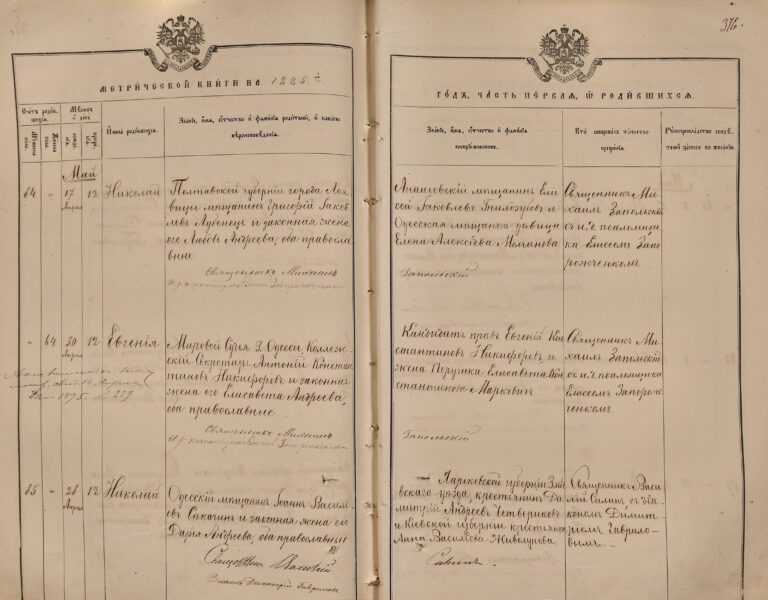 376.
МЕТРИЧЕСКОЙ КНИГИ НА 1885й
ГОДЪ, ЧАСТЬ ПЕРВАЯ, Ѿ РОДИВШИХСЯ.
Счетъ родив-
шихся.
Мѣсяцъ
и день
Имена родившихся.
Званіе, имя, отчество и фамилія родителей, и какого
вѣроисповѣданія.
Званіе, имя, отчество и фамилія
воспріемниковъ.
Кто совершалъ таинство
крещенія.
Рукоприкладство свидѣ-
телей записи по желанію
Май
84 " 17 12 Николай
Апрѣ
Полтавской губерніи города Лох-
вицы мѣщанинъ Григорій Яков-
левъ Лубенецъ и законная жена
его Любовь Андреева, оба православ-
ные
Священникъ Михаилъ
Ананьевскій мѣщанинъ Ели-
сей Яковлевъ и
Одесская мѣщанка дѣвица
Елена Алексѣева Молчанова
Запольскій
Священникъ Ми-
хаилъ Запольскій
съ и. д. псаломщи-
ка Елисеемъ Запо-
рожченкомъ
" 64 30 12 Евгенія
Апрѣ
Мировой Судья г. Одессы, Коллеж-
скій Секретарь Антоній Констан-
тиновъ Никифоровъ и законная
жена его Елисавета Андреева,
оба православные
Священникъ Михаилъ
1895. № 279
Кандидатъ правъ Евгеній Кон-
стантиновъ Никифоровъ и
жена Поручика Елисавета Кон-
стантинова Маркевичъ
Запольскій
Священникъ Ми-
хаилъ Запольскій
съ и. д. псаломщика
Елисеемъ Запорож-
ченкомъ.
85 " 26 12 Николай
Апрѣ
Одесскій мѣщанинъ Іоаннъ Василь-
евъ и законная жена его
Дарія Андреева, оба православные
Священникъ
Діаконъ Димитрій Гавриловъ
Харьковской губерніи Змі-
евскаго уѣзда, крестьянинъ Ди-
митрій Андреевъ Четвериковъ
и Кіевской губерніи крестьянка
Анна Васильева
Священникъ Васи-
лій съ діа-
кономъ Димит-
ріемъ Гаврило-
вымъ.